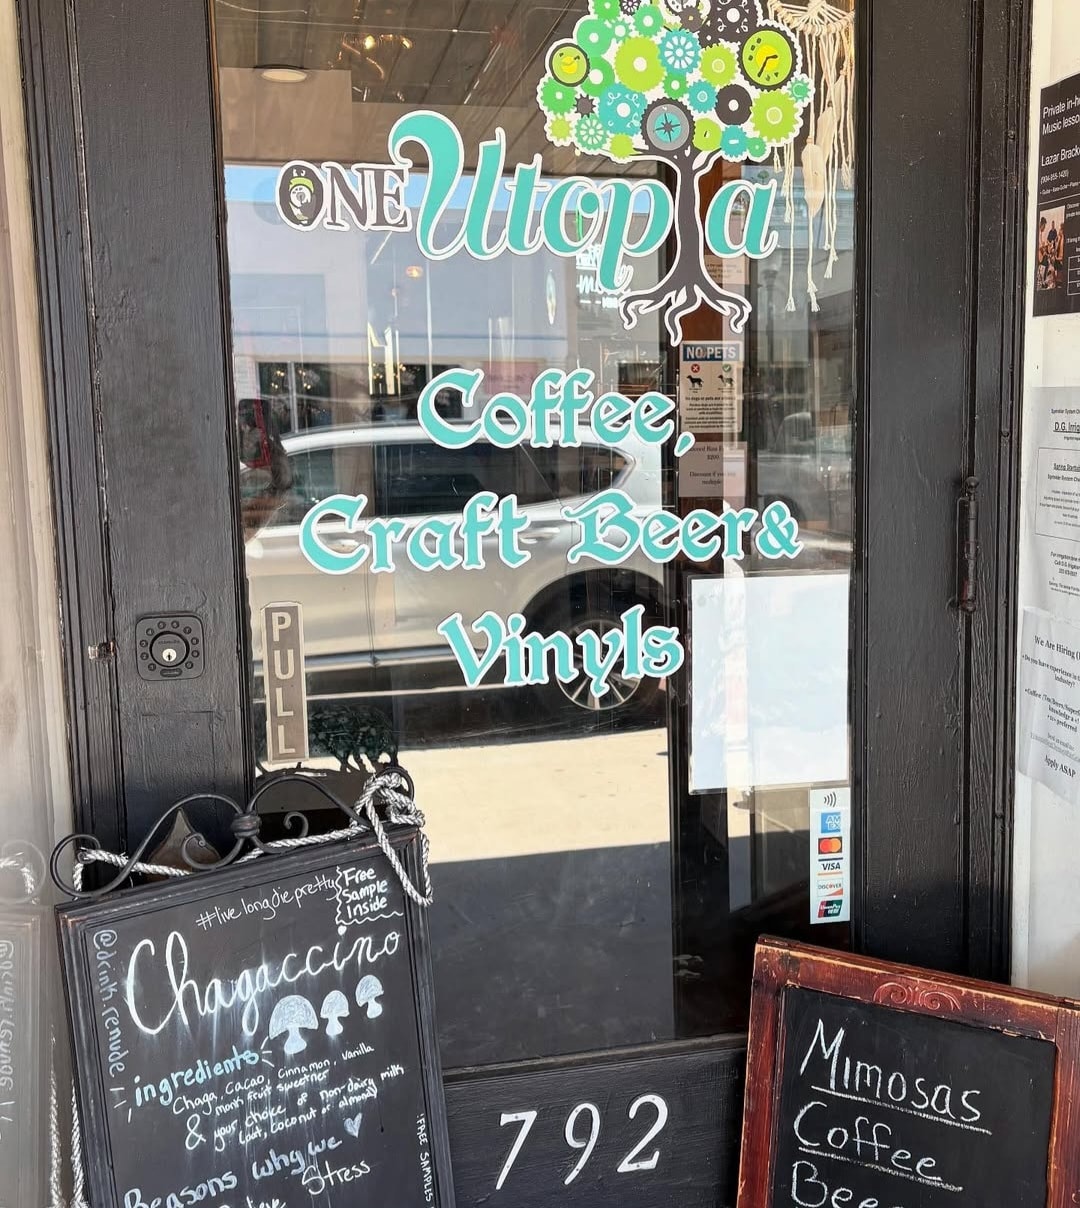 ONE Utopia
Coffee,
Craft Beer &
Vinyls
NO PETS
PULL
AM
EX
VISA
DISCOVER
UnionPay
792
#live.long.die.pretty
Free
Sample
Inside
@drink.renude
Chagaccino
ingredients
Chaga, cacao, cinnamon, vanilla
monk fruit sweetner
& your choice of non-dairy milk
(oat, coconut or almond)
Reasons why we
Stress
!FREE SAMPLES
Mimosas
Coffee
Bee
Private in-h
Music lesso
Lazar Brack
D.G. Irrig
We Are Hiring
Do you have experience in t
industry?
preferred
Apply ASAP